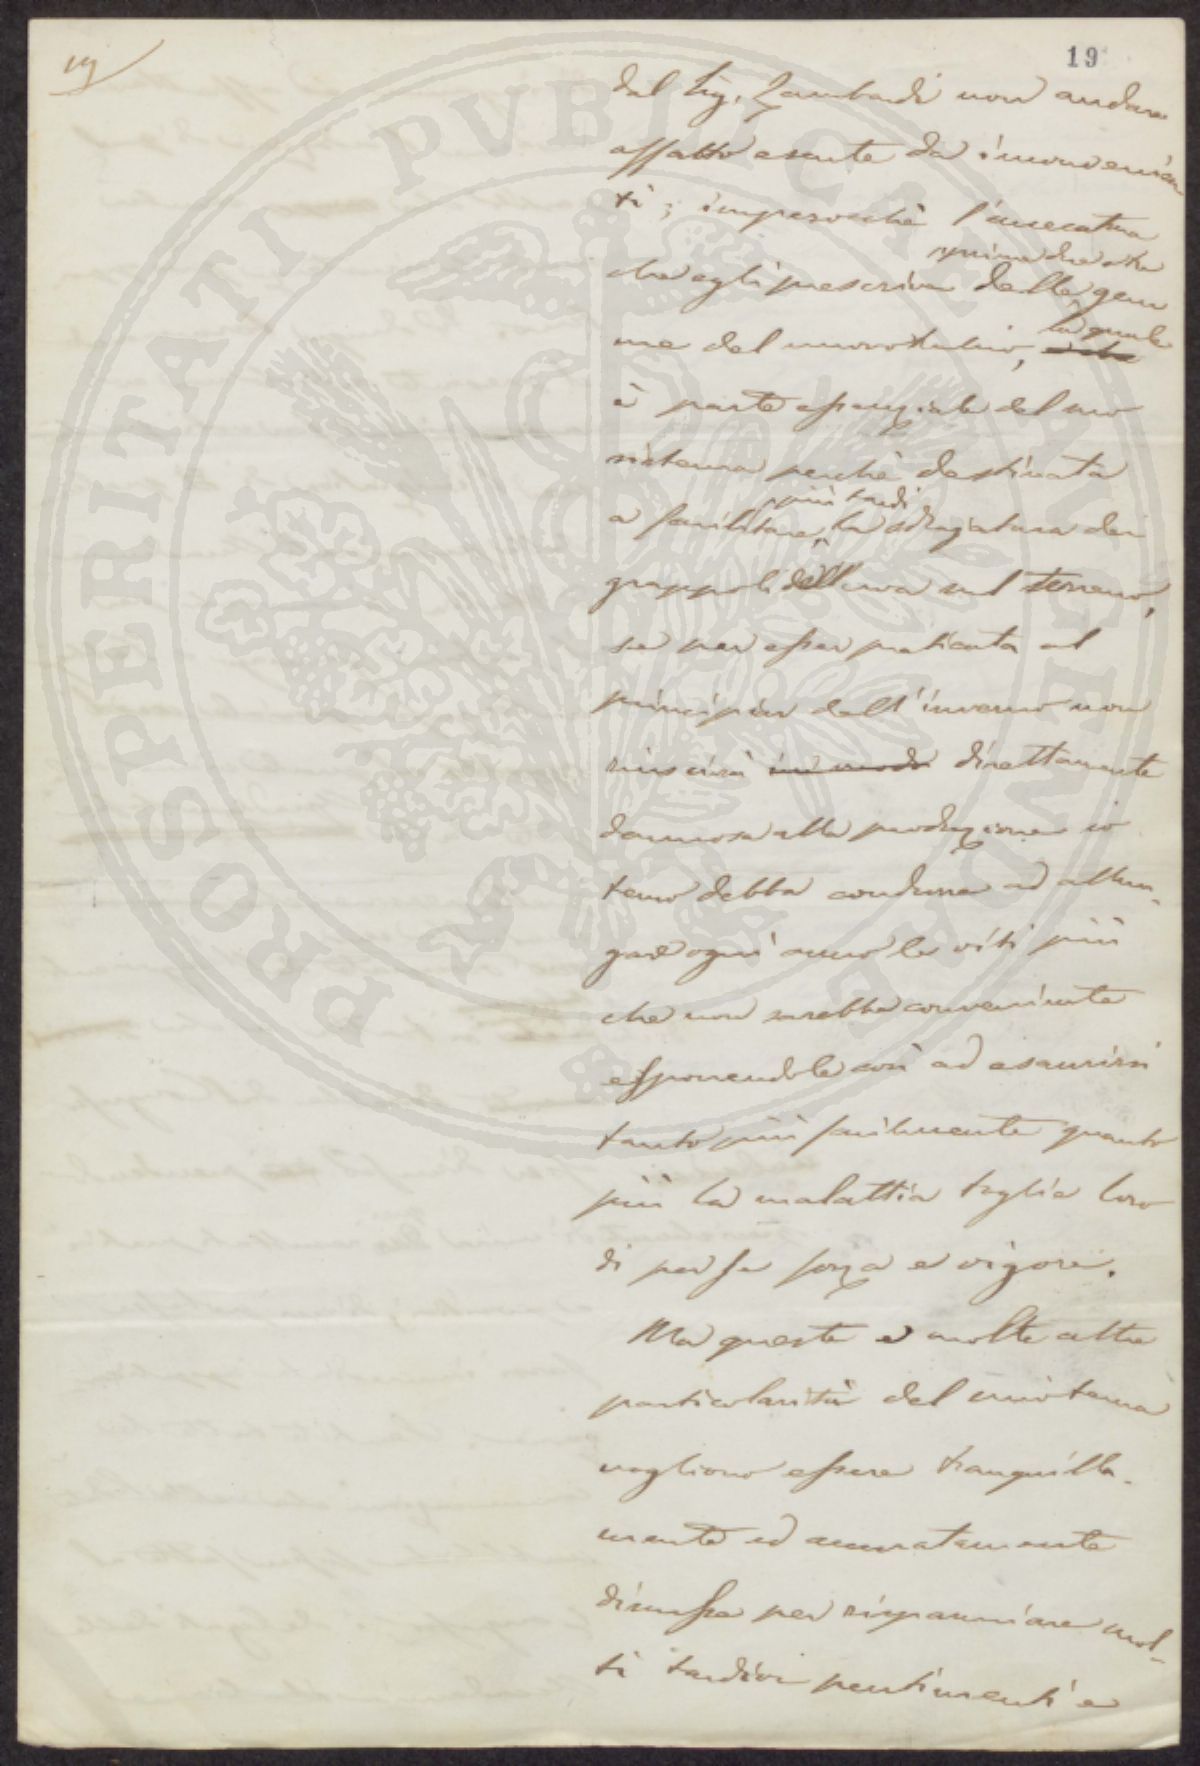 19
19
PROSPERITATI PVBLICAE AVGENDAE
dal Sig. Zambardi non andare
affatto esente da inconvenien
ti; imperocchè l'accecatura
prime due o tre
che egli prescrive delle gem
me del nuovo tralcio, la quale
è parte essenziale del suo
sistema perchè destinata
più tardi
a facilitare la sdrajatura dei
grappoli dell'uva sul terreno,
se per esser praticata al
principiar dell'inverno non
riuscirà in modo direttamente
dannosa alla produzione io
temo debba condurre ad allun-
gare ogni anno le viti più
che non sarebbe conveniente
esponendole così ad esaurirsi
tanto più facilmente quanto
più la malattia toglie loro
di per se forza e vigore.
Ma queste e molte altre
particolarità del
vogliono essere tranquilla-
mente ed accuratamente
discusse per risparmiare mol-
ti tardivi pentimenti e